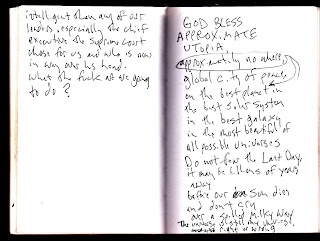 intelligent than any of our
leaders, especially the chief
executive the Supreme Court
chose for us and who is now
in way over his head.
what the fuck are we going
to do?
GOD BLESS
APPROX.MATE
UTOPIA
approximately no where,
global city of peace
on the best planet in
the best solar system
in the best galaxy
in the most beautiful of
all possible universes
Do not fear the Last Day,
it may be billions of years
away
before our Sun dies
and don't cry
over a spilled Milky Way.
The universe is still
right or wrong